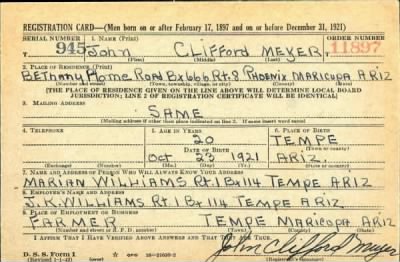 REGISTRATION CARD—(Men born on or after February 17, 1897 and on or before December 31, 1921)
SERIAL NUMBER 1. NAME (Print) ORDER NUMBER
945 John Clifford Meyer 11897
(First) (Middle) (Last)
2. PLACE OF RESIDENCE (Print)
Bethany Home Road Bx 666 Rt. 8 Phoenix Maricopa Ariz
(Number and street) (Town, township, village, or city) (County) (State)
[THE PLACE OF RESIDENCE GIVEN ON THE LINE ABOVE WILL DETERMINE LOCAL BOARD
JURISDICTION; LINE 2 OF REGISTRATION CERTIFICATE WILL BE IDENTICAL]
3. MAILING ADDRESS
SAME
[Mailing address if other than place indicated on line 2. If same insert word same]
4. TELEPHONE 5. AGE IN YEARS 6. PLACE OF BIRTH
20 TEMPE
DATE OF BIRTH (Town or county)
Oct 23 1921 ARIZ.
(Exchange) (Number) (Mo.) (Day) (Yr.) (State or country)
7. NAME AND ADDRESS OF PERSON WHO WILL ALWAYS KNOW YOUR ADDRESS
MARIAN WILLIAMS Rt. 1 Bx 114 TEMPE ARIZ
8. EMPLOYER'S NAME AND ADDRESS
J.K. WILLIAMS Rt. 1 Bx 114 TEMPE ARIZ
9. PLACE OF EMPLOYMENT OR BUSINESS
FARMER TEMPE MARICOPA ARIZ
(Number and street or R. F. D. number) (Town) (County) (State)
I AFFIRM THAT I HAVE VERIFIED ABOVE ANSWERS AND THAT THEY ARE TRUE.
D. S. S. Form 1
(Revised 1-1-42) (over) 16—21630-2
John Clifford Meyer